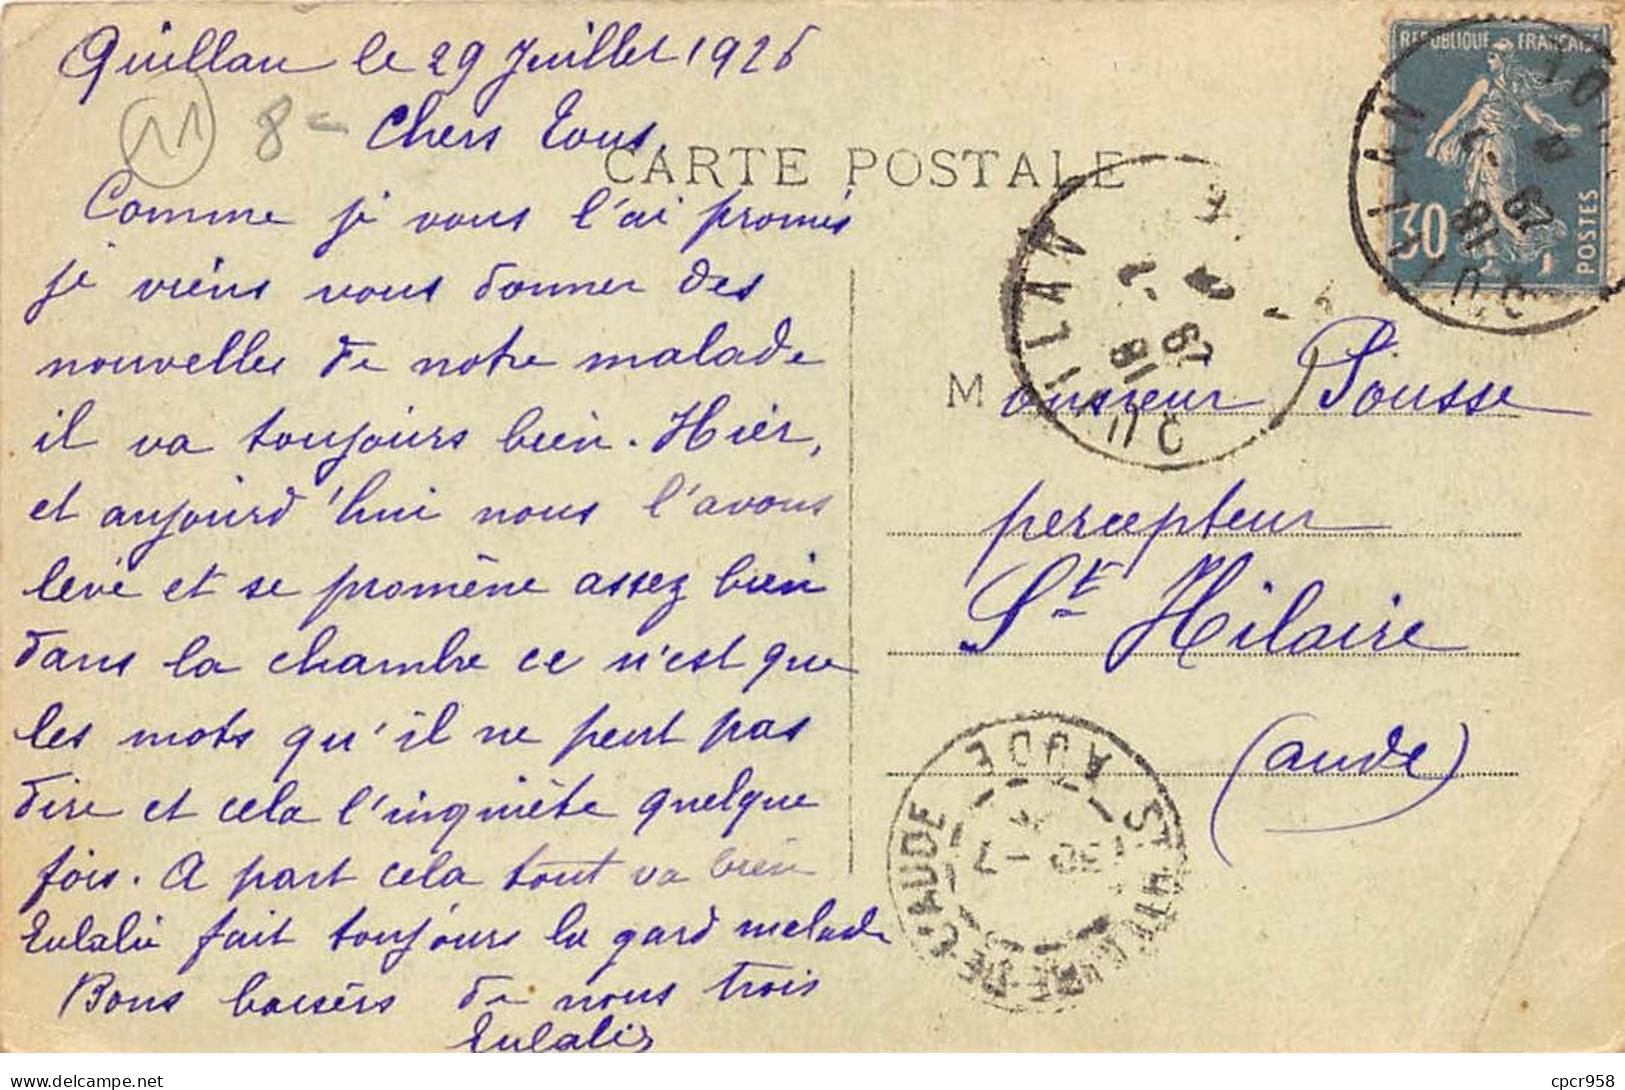 Quillan le 29 Juillet 1926
M 8-
Chers Tous,
CARTE POSTALE
Comme je vous l'ai promis
je viens vous donner des
nouvelles de notre malade
il va toujours bien. Hier,
et aujourd'hui nous l'avons
levé et se promène assez bien
dans la chambre ce n'est que
les mots qu'il ne peut pas
dire et cela l'inquiète quelque
fois. A part cela tout va bien
Eulalie fait toujours la gard malade
Bons baisers de nous trois
Eulalie
REPUBLIQUE FRANÇAISE
30
POSTES
QUILLAN
18
29
-7
QUILLAN
18
29
-7
Monsieur Pousse
percepteur
St Hilaire
(aude)
ST HILAIRE DE L'AUDE
AUDE
30
-7
Delcampe.net
cpcr958